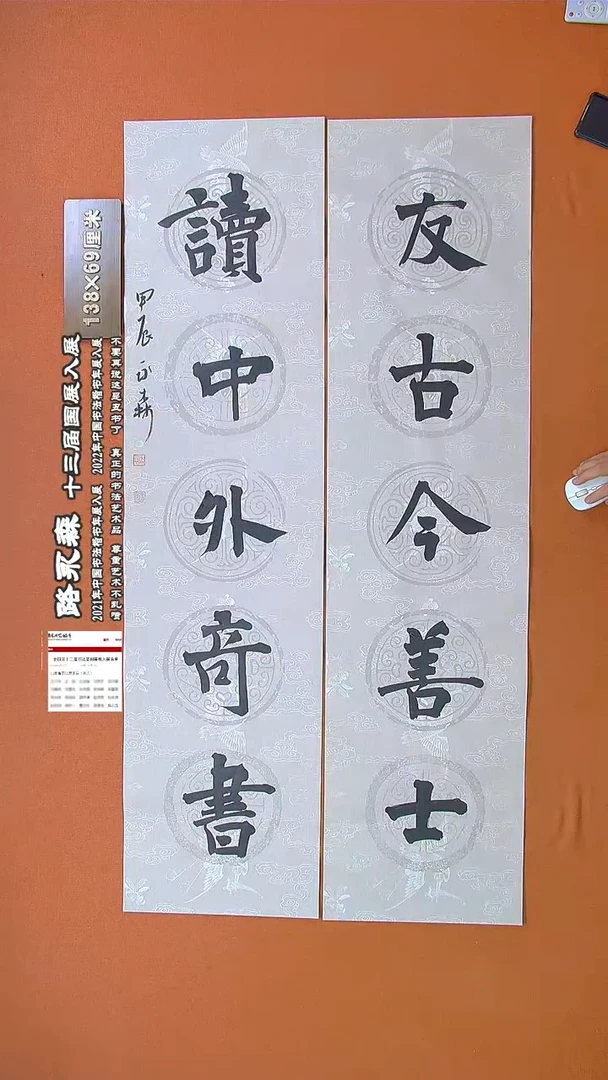 友古今善士
讀中外奇書
甲辰 永森
138×69厘米
路永森 十三届国展入展
2021年中国书法楷书年展入展 2022年中国书法楷书年展入展
不要再说这是丑书了 真正的书法艺术品 尊重艺术不乱喷